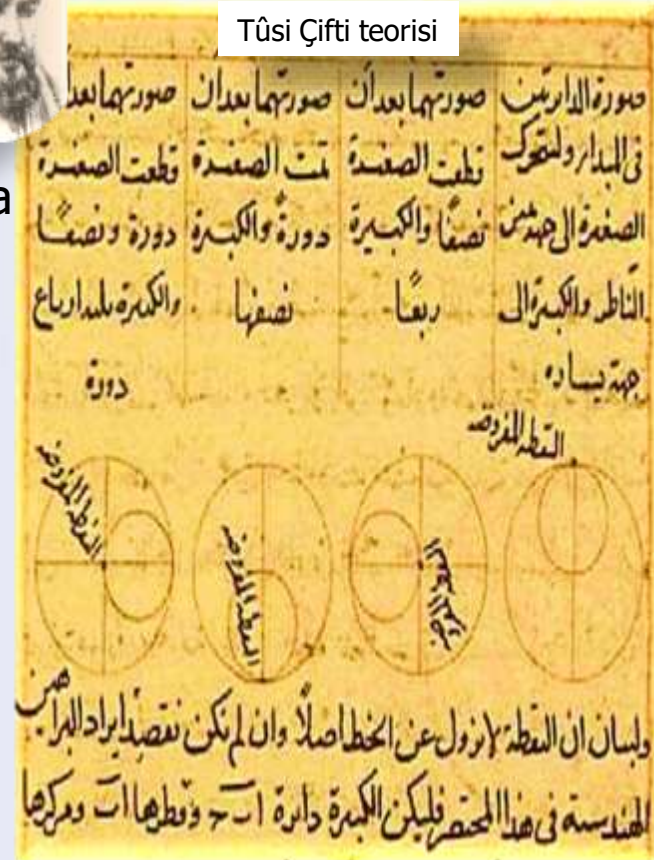 Tûsi Çifti teorisi
a
صورة الدايرتين
في المبدا ولتتحرك
الصغيرة الى جهة يمين
الناظر والكبيرة الى
جهة يساره
صورتهما بعد أن
قطعت الصغيرة
نصفًا والكبيرة
ربعًا
صورتهما بعد ان
تمت الصغيرة
دورةً والكبيرة
نصفها
صورتهما بعد
قطعت الصغيرة
دورة ونصفًا
والكبيرة ثلثة ارباع
دورة
النقطة المفروضة
النقطة المفروضة
النقطة المفروضة
ولبيان ان النقطة لا تزول عن الخط اصلاً وان لم نكن نقصد ايراد البراهين
الهندسية في هذا المختصر فليكن الكبيرة دائرة ا ب ح وقطرها ا ب ومركزها